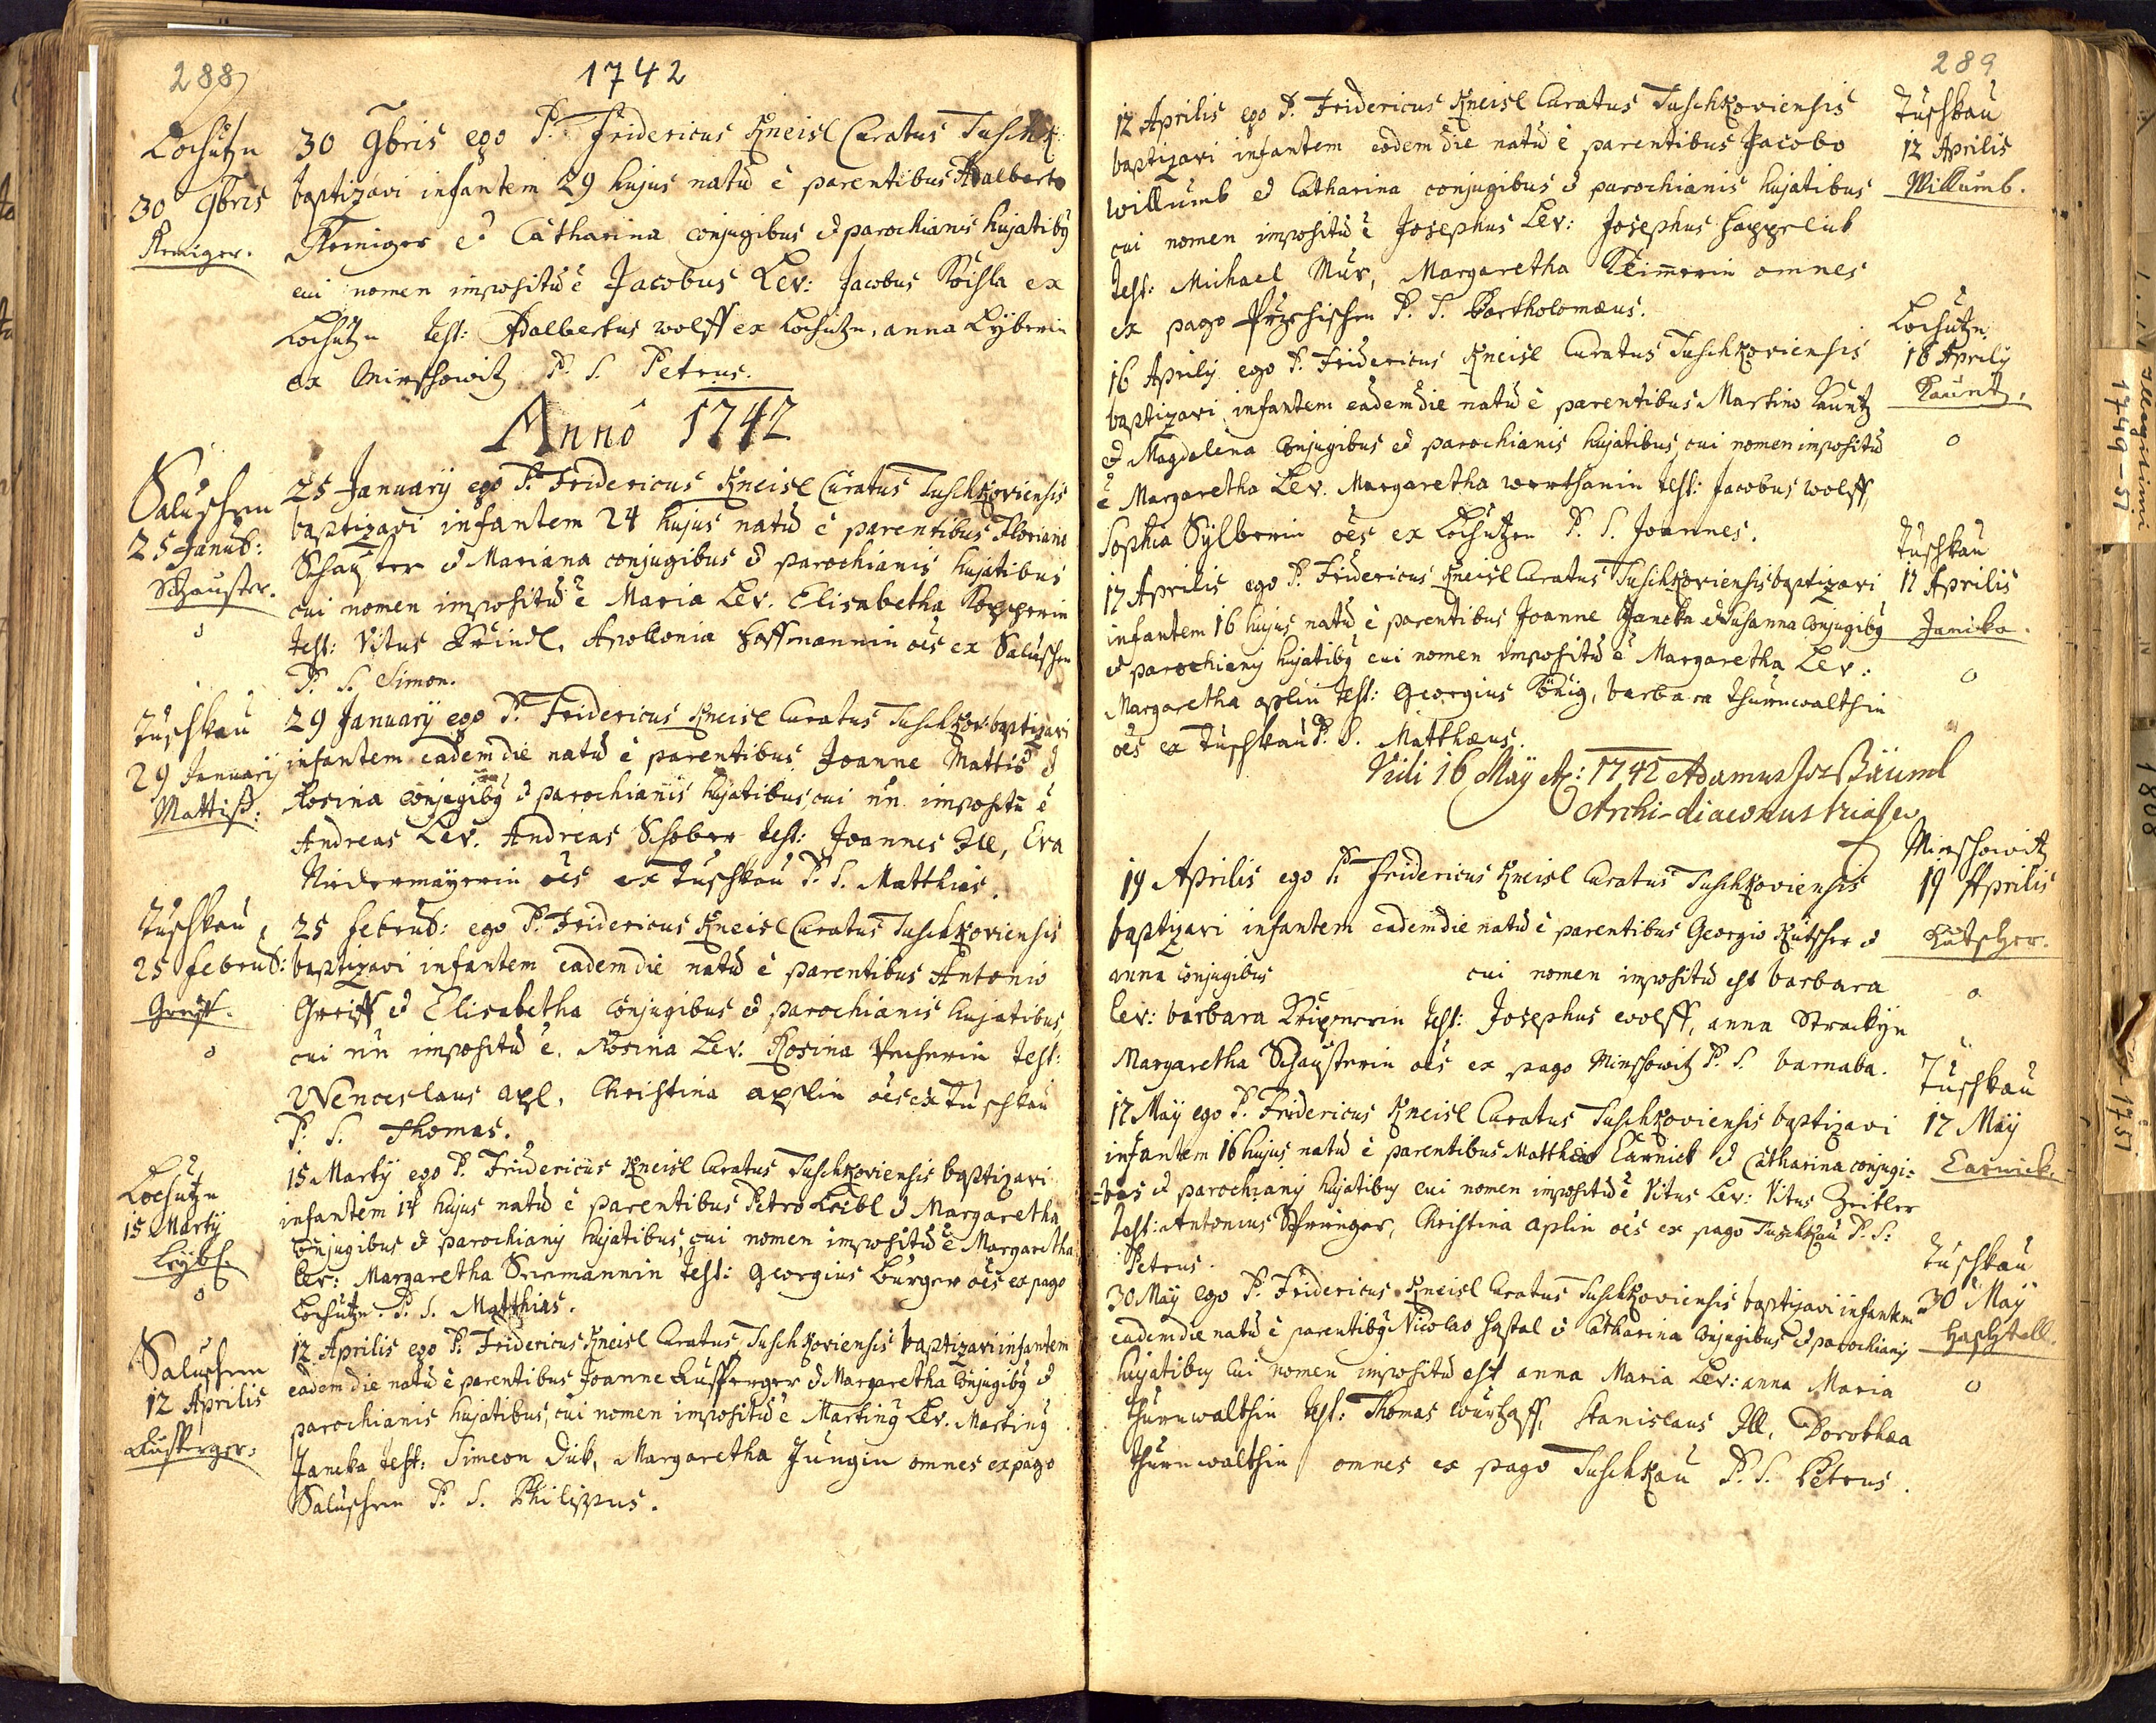 288
1742
Lochutzn
30 9bris
Reiniger.
30 9bris ego P. Fridericus Kneisl Curatus Tuschk:
baptizavi infantem 29 hujus natū è parentibus Adalberto
Reiniger et Catharina conjugibus et parochianis hujatibȝ
cui nomen impositū ē Jacobus Lev: Jacobus Koisla ex
Lochutzn test: Adalbertus wolff ex Lochutzn, anna Lÿberin
ex Mirschowitz P. S. Petrus.
Anno 1742
Saluschen
25 Januā:
Schauster.
25 Januarÿ ego P. Fridericus Kneisl Curatus Tuschkoviensis
baptizavi infantem 24 hujus natū è parentibus Floriano
Schauster et Mariana conjugibus et parochianis hujatibus
cui nomen impositū ē Maria Lev. Elisabetha Kopperin
test: Vitus Kreindl, Apollonia Hoffmannin oēs ex Saluschen
P. S. Simon.
Tuschkau
29 Januarÿ
Mattiß:
29 Januarÿ ego P. Fridericus Kneisl Curatus Tuschkov: baptizavi
infantem eadem die natū è parentibus Joanne Mattis et
Rosina conjugibȝ et parochianis hujatibus, cui nn̄ impositū ē
Andreas Lev. Andreas Schober test: Joannes Ill, Eva
Nidermaÿerin oēs ex Tuschkau P. S. Matthias.
Tuschkau
25 Februā:
Greiff.
25 Februā: ego P. Fridericus Kneisl Curatus Tuschkoviensis
baptizavi infantem eadem die natū è parentibus Antonio
Greiff et Elisabetha conjugibus et parochianis hujatibus,
cui nn̄ impositū ē. Rosina Lev. Rosina Pecherin test:
Wenceslaus apl, Christina aplin oēs ex Tuschkau
P. S. Thomas.
Lochutzn
15 Martÿ
Leÿbl.
15 Martÿ ego P. Fridericus Kneisl Curatus Tuschkoviensis baptizavi
infantem 14 hujus natū è parentibus Petro Leibl et Margaretha
conjugibus et parochianȳ hujatibus, cui nomen impositū ē Margaretha
lev: Margaretha Seemannin test: Georgius Burger oēs ex pago
Lochutzn. P. S. Matthias.
Saluschen
12 Aprilis
Rusperger.
12 Aprilis ego P. Fridericus Kneisl Curatus Tuschkoviensis baptizavi infantem
eadem die natū è parentibus Joanne Rusperger et Margaretha conjugibȝ et
parochianis hujatibus, cui nomen impositū ē Martinȝ Lev. Martinȝ
Jancka test: Simeon Dub, Margaretha Jungin omnes ex pago
Saluschen P. S. Philippus.
289
12 Aprilis ego P. Fridericus Kneisl Curatus Tuschkoviensis
baptizavi infantem eodem die natū è parentibus Jacobo
Willumb et Catharina conjugibus et parochianis hujatibus
cui nomen impositū ē Josephus Lev: Josephus Happelick
test: Michael Mur, Margaretha Kleimerin omnes
ex pago P. S. Bartholomæus.
Tuschkau
12 Aprilis
Willumb.
16 Aprilÿ ego P. Fridericus Kneisl Curatus Tuschkoviensis
baptizavi infantem eadem die natū è parentibus Martino Kauntz
et Magdalena conjugibus et parochianis hujatibus, cui nomen impositū
ē Margaretha Lev. Margaretha worthanin test: Jacobus wolff,
Sophia Sÿlberin oēs ex Lochutzn P. S. Joannes.
Lochutzn
16 Aprilÿ
Kauntz.
17 Aprilis ego P. Fridericus Kneisl Curatus Tuschkoviensis baptizavi
infantem 16 hujus natū è parentibus Joanne Jancka et Susanna conjugibȝ
et parochianȳ hujatibȝ cui nomen impositū ē Margaretha Lev:
Margaretha aplin test: Georgius König, barbara Thurnwaltsin
oēs ex Tuschkau P. S. Matthæus.
Tuschkau
17 Aprilis
Jancka.
Vidi 16 Maÿ Aȝ: 1742 Adamus Jos Bäuml
Archi-diaconus
19 Aprilis ego P. Fridericus Kneisl Curatus Tuschkoviensis
baptizavi infantem eadem die natū è parentibus Georgio Kutscher et
anna conjugibus cui nomen impositū est barbara
lev: barbara test: Josephus wolff, anna Strackÿn
Margaretha Schausterin oēs ex pago Mirschowitz P. S. barnaba.
Mirschowitz
19 Aprilis
Kutscher.
17 Maÿ ego P. Fridericus Kneisl Curatus Tuschkoviensis baptizavi
infantem 16 hujus natū è parentibus Matthæo Earnick et Catharina conjugi=
=bus et parochianȳ hujatibus cui nomen impositū ē Vitus Lev: Vitus Zeitler
test: Antonius Springer, Christina aplin oēs ex pago Tuschkau P. S:
Petrus.
Tuschkau
17 Maÿ
Earnick.
30 Maÿ ego P. Fridericus Kneisl Curatus Tuschkoviensis baptizavi infantem
eadem die natū è parentibȝ Nicolao Hastal et Catharina conjugibus et parochianȳ
hujatibus cui nomen impositū est anna Maria Lev: anna Maria
Thurnwaltsin test: Thomas wurtzaff, Stanislaus Ill, Dorothea
Thurnwaltsin omnes ex pago Tuschkau P. S. Petrus.
Tuschkau
30 Maÿ
Haschtall.
1749-57
1808
1757